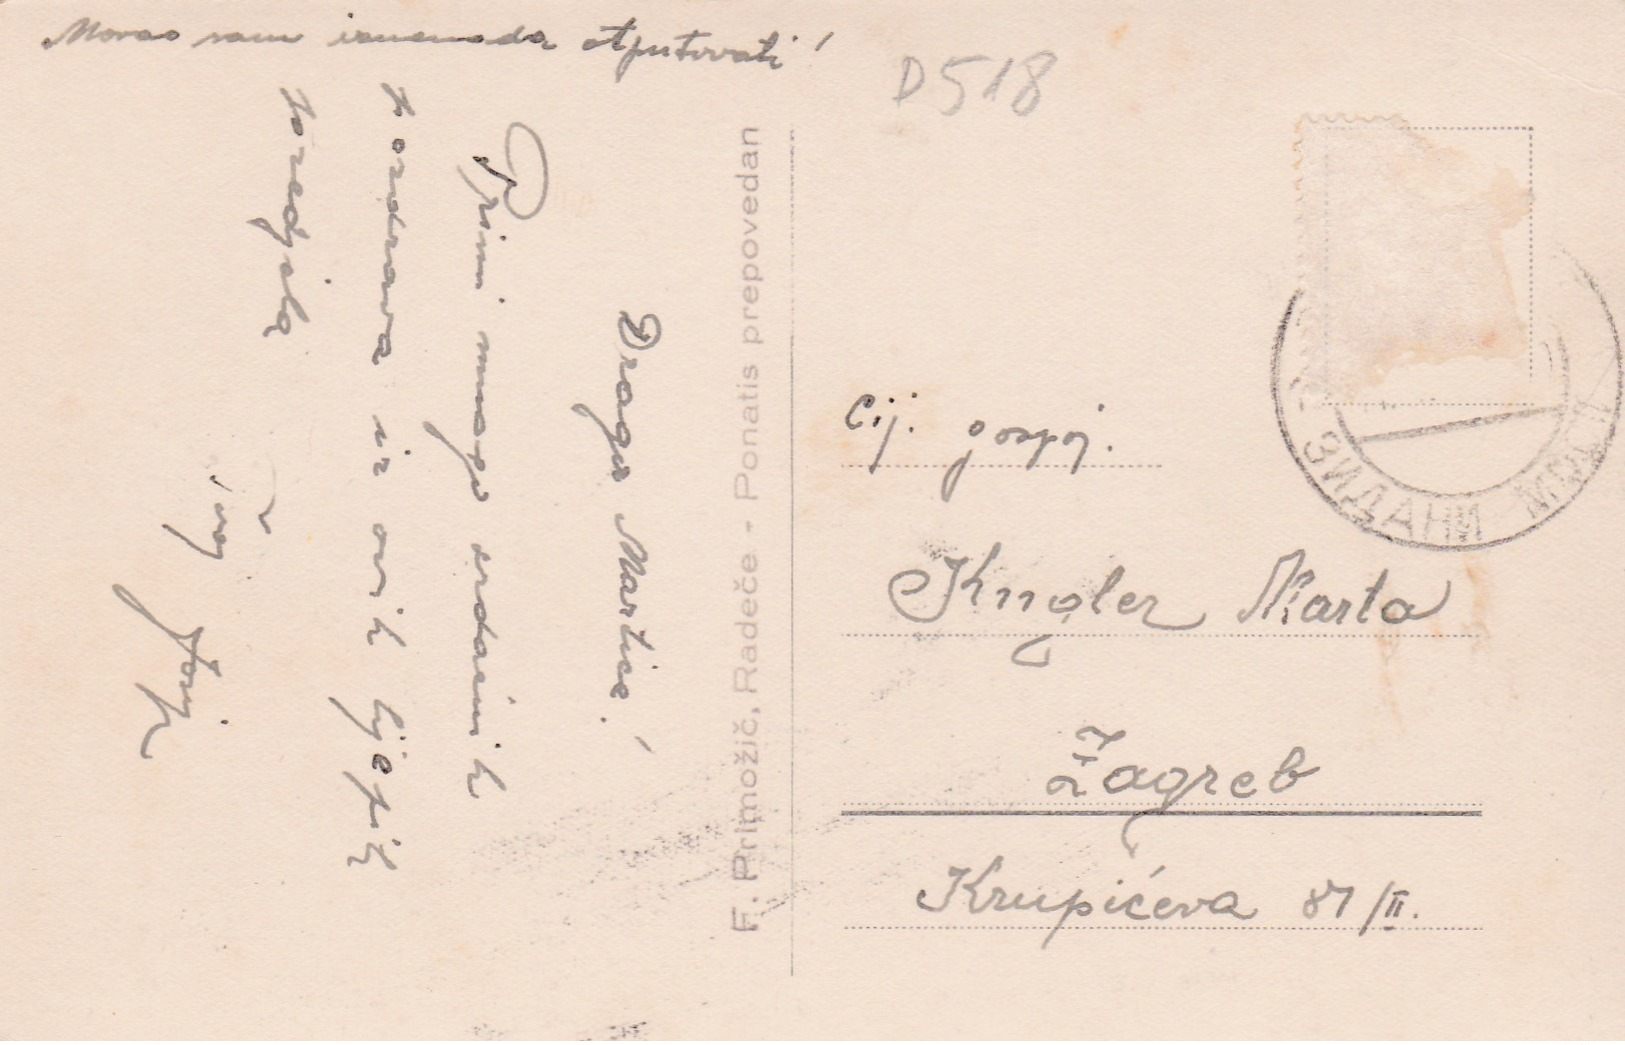 Morao sam iznenada otputovati!
Draga Martice!
Primi mnogo srdačnih
pozdrava iz ovih lijepih
predjela
Tvoj Josip
F. Primožič, Radeče - Ponatis prepovedan
D518
Cij. gospoj.
Marta
Zagreb
Krupićeva 87/II.
ЗИДАНИ МОСТ